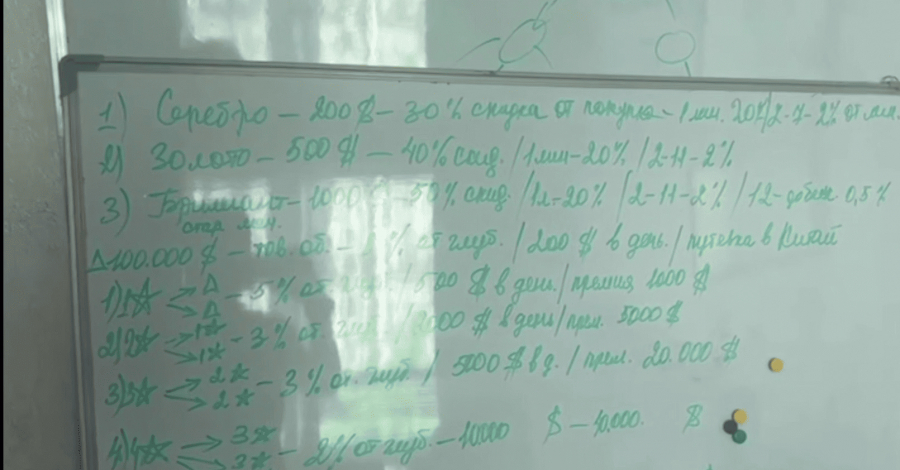 1) Серебро - 200 $ - 30 % скидка от покупки - 1 лин. 20%/2-7-2% от лин.
2) Золото - 500 $ - 40% скид. / 1 лин - 20% / 2-11-2%
3) Бриллиант - 1000 - 50% скид. / 1л-20% / 2-11-2% / 12- 0,5 %
Δ100.000 $ - тов. об. - % от глуб. / 200 $ в день. / путевка в Китай
1) 1☆ < Δ Δ - 5 % от глуб. / 500 $ в день. / премия 1000 $
2) 2☆ → 1☆ → 1☆ - 3 % от. глуб. / 2000 $ в день / прем. 5000 $
3) 3☆ → 2☆ → 2☆ - 3 % от. глуб / 5000 $ в д. / прем. 20.000 $
4) 4☆ → 3☆ → 3☆ - 2% от глуб. - 10000 $ - 40.000. $